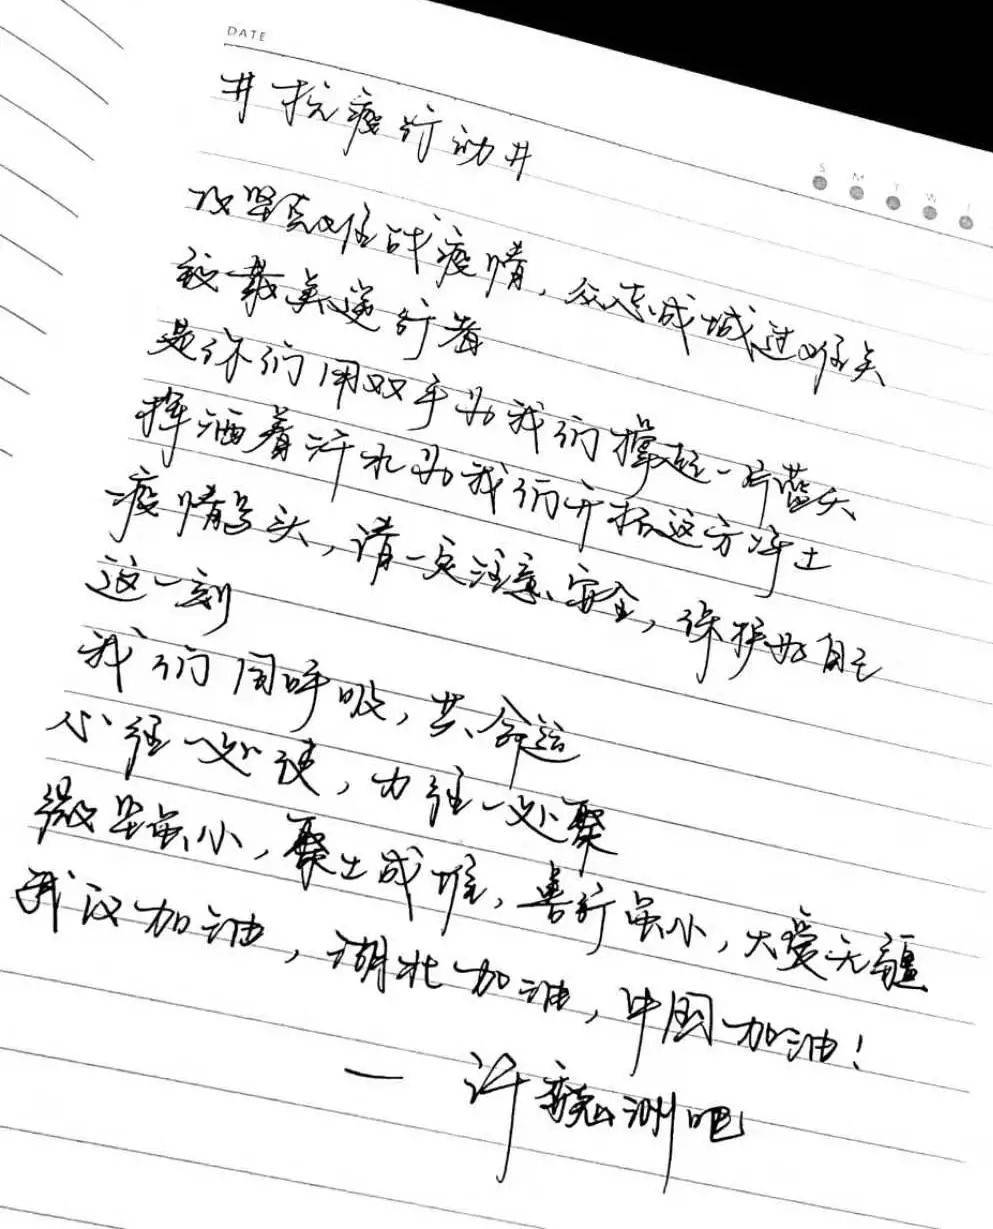 DATE
S M T W
#抗疫行动#
攻坚克难战疫情，众志成城过难关
致最美逆行者
是你们用双手为我们撑起一片蓝天
挥洒着汗水为我们开拓这方净土
疫情当头，请一定注意安全，保护好自己
这一刻
我们同呼吸，共命运
心往一处使，力往一处聚
微尘虽小，聚土成堆，善行虽小，大爱无疆
武汉加油，湖北加油，中国加油！
— 许魏洲吧